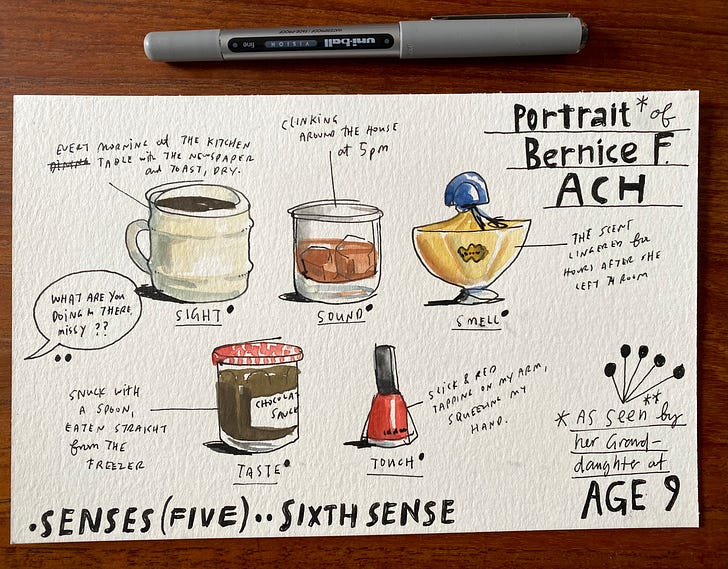 WATERPROOF / FADE-PROOF
uni-ball
VISION
fine
Portrait* of
Bernice F.
ACH
EVERY MORNING at THE KITCHEN
TABLE with THE NEWSPAPER
and TOAST, DRY.
CLINKING
AROUND THE HOUSE
at 5pm
THE SCENT
LINGERED for
HOURS AFTER SHE
LEFT A ROOM
WHAT ARE YOU
DOING in THERE,
MISSY ??
SIGHT
SOUND
SMELL
SNUCK WITH
A SPOON,
EATEN STRAIGHT
from THE
FREEZER
CHOCOLA
SAUCE
SLICK & RED
TAPPING ON MY ARM,
SQUEEZING MY
HAND.
TASTE
TOUCH
* AS SEEN by**
her Grand-
daughter at
AGE 9
• SENSES (FIVE) •• SIXTH SENSE